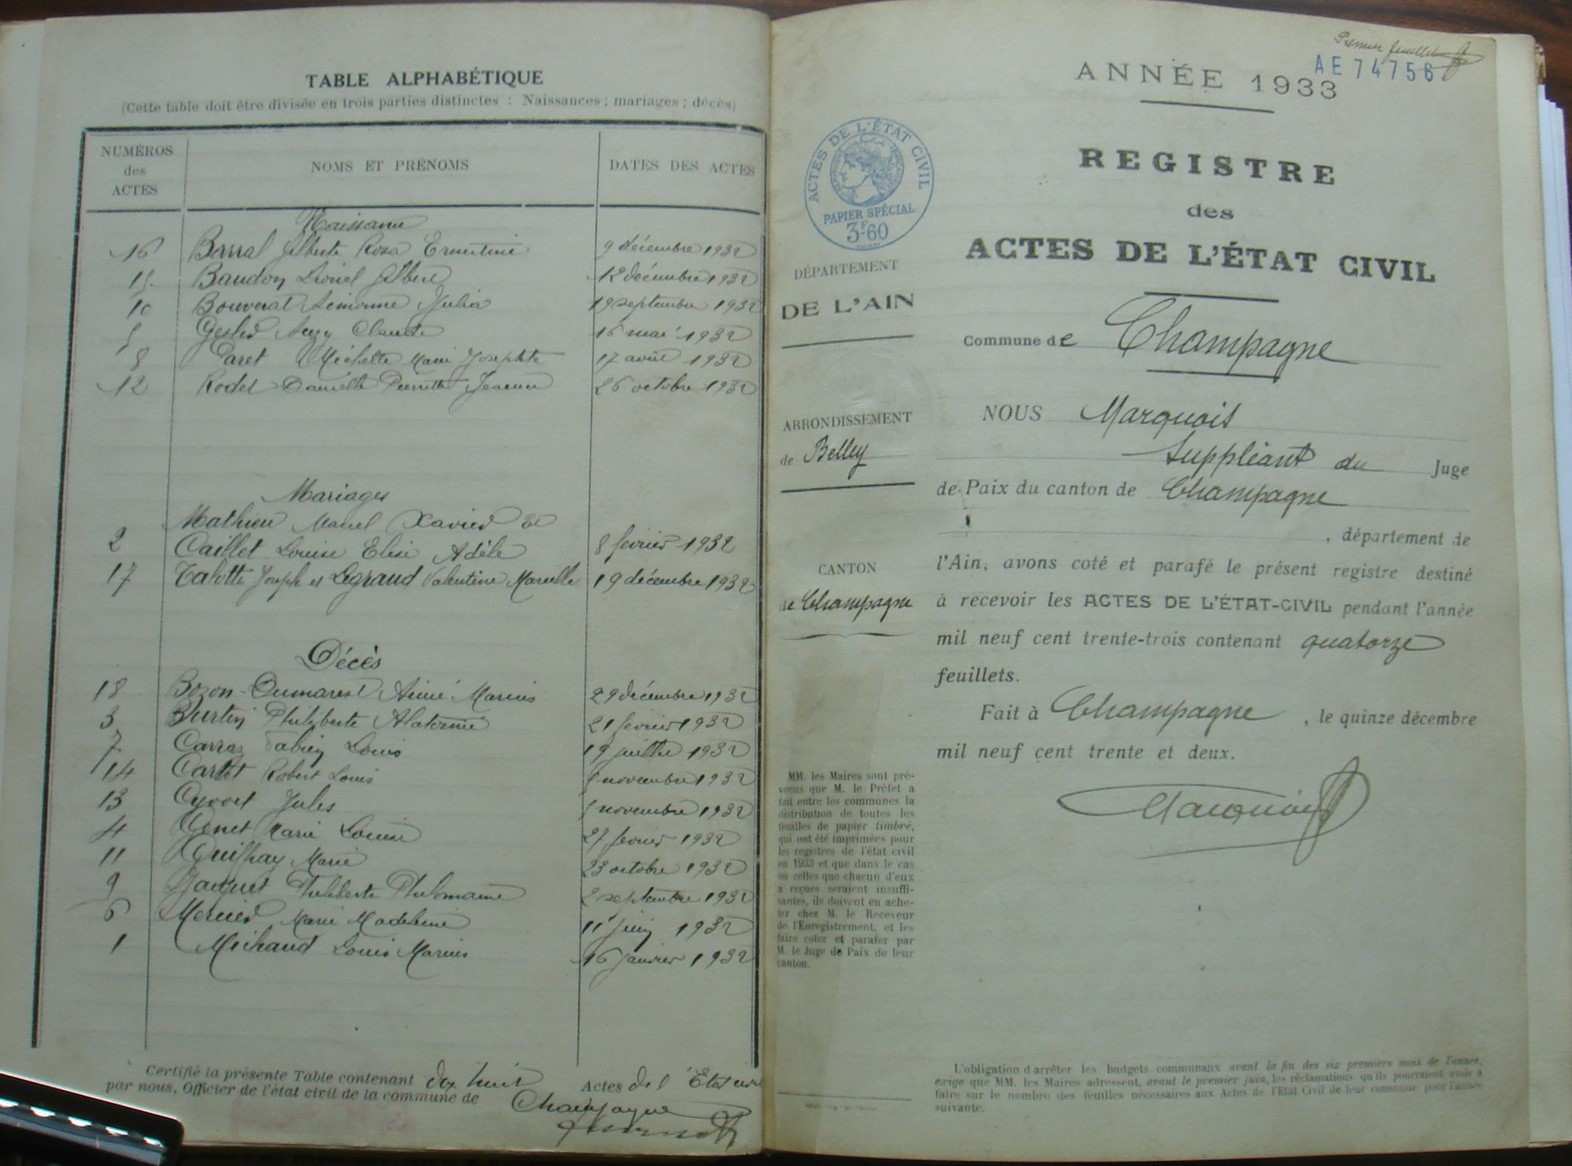 TABLE ALPHABÉTIQUE
(Cette table doit être divisée en trois parties distinctes : Naissances ; mariages ; décès)
NUMÉROS des ACTES
NOMS ET PRÉNOMS
DATES DES ACTES
16 Gilberte Rosa Ernestine 9 décembre 1932
Baudon Lionel Gilbert 12 décembre 1932
10 Bouverat Simonne Julia 19 septembre 1932
5 Claude 16 mai 1932
8 Paret Michelle Marie Josephte 17 août 1932
12 Rodet Danielle Pierrette Jeanne 26 octobre 1932
Mariages
Mathieu Marcel Xavier et
2 Caillet Louise Elise Adèle 8 février 1932
17 Talotti Joseph et Legrand Valentine Marcelle 19 décembre 1932
Décès
18 Bozon-Dumarest Aimé Marius 29 décembre 1932
3 Burtin Philiberte 21 février 1932
7 Carraz Fabien Louis 19 juillet 1932
14 Robert Louis novembre 1932
13 Jules novembre 1932
4 Genet Marie Louise 27 février 1932
11 Marie 23 octobre 1932
9 Jacquet Philiberte Philomène 2 septembre 1932
6 Mercier Marie Madeleine 11 juin 1932
1 Michaud Louis Marius 16 janvier 1932
Certifié la présente Table contenant dix huit Actes de l'Etat civil
par nous, Officier de l'état civil de la commune de Champagne
Premier feuillet
AE 74756
ANNÉE 1933
REGISTRE
des
ACTES DE L'ÉTAT CIVIL
ACTES DE L'ÉTAT CIVIL
PAPIER SPÉCIAL
3F60
DÉPARTEMENT
DE L'AIN
Commune de Champagne
ARRONDISSEMENT
de Belley
CANTON
de Champagne
NOUS Marquois
Suppléant du Juge
de Paix du canton de Champagne
, département de
l'Ain, avons coté et parafé le présent registre destiné
à recevoir les ACTES DE L'ÉTAT-CIVIL pendant l'année
mil neuf cent trente-trois contenant quatorze
feuillets.
Fait à Champagne, le quinze décembre
mil neuf cent trente et deux.
Marquois
MM. les Maires sont pré-
venus que M. le Préfet a
fait entre les communes la
distribution de toutes les
feuilles de papier timbré,
qui ont été imprimées pour
les registres de l'état civil
en 1933 et que dans le cas
où celles que chacun d'eux
a reçues seraient insuffi-
santes, ils doivent en ache-
ter chez M. le Receveur
de l'Enregistrement, et les
faire coter et parafer par
M. le Juge de Paix de leur
canton.
L'obligation d'arrêter les budgets communaux avant la fin des six premiers mois de l'année,
exige que MM. les Maires adressent, avant le premier juin, les réclamations qu'ils pourraient avoir à
faire sur le nombre des feuilles nécessaires aux Actes de l'État Civil de leur commune pour l'année
suivante.